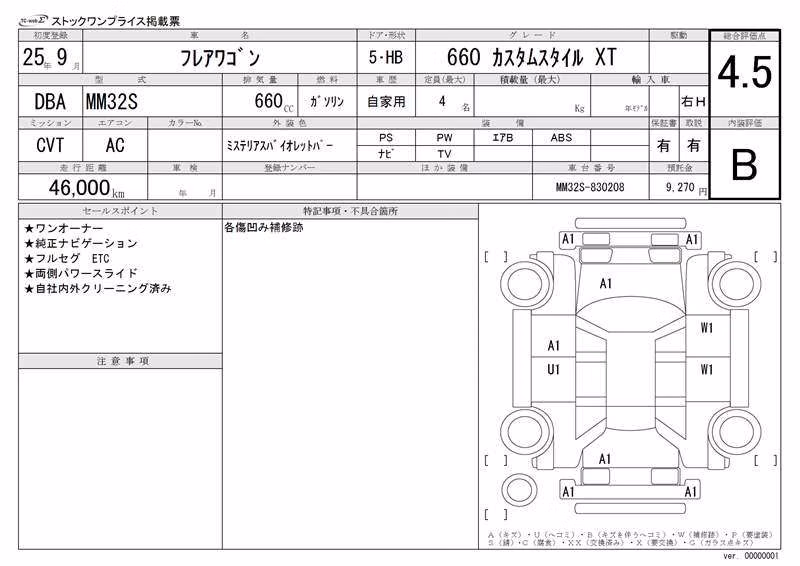 TC-webΣ ストックワンプライス掲載票
初度登録 車名 ドア・形状 グレード 駆動 総合評価点
25年 9月 フレアワゴン 5・HB 660 カスタムスタイル XT 4.5
型式 排気量 燃料 車歴 定員(最大) 積載量(最大) 輸入車
DBA MM32S 660CC ガソリン 自家用 4名 Kg 年モデル 右H
ミッション エアコン カラーNo. 外装色 装備 保証書 取説 内装評価
CVT AC ミステリアスバイオレットパー PS PW エアB ABS 有 有 B
ナビ TV
走行距離 車検 登録ナンバー ほか装備 車台番号 預託金
46,000km 年 月 MM32S-830208 9,270円
セールスポイント
★ワンオーナー
★純正ナビゲーション
★フルセグ ETC
★両側パワースライド
★自社内外クリーニング済み
注意事項
特記事項・不具合箇所
各傷凹み補修跡
A1 A1
[ ] [ ]
A1
W1
A1
U1 W1
A1
[ ] [ ]
A1 A1
[ ]
A(キズ)・U(ヘコミ)・B(キズを伴うヘコミ)・W(補修跡)・P(要塗装)
S(錆)・C(腐食)・XX(交換済み)・X(要交換)・G(ガラス点キズ)
ver. 00000001